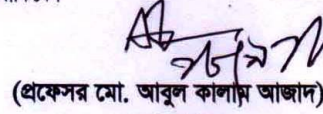 (প্রফেসর মো. আবুল কালাম আজাদ)